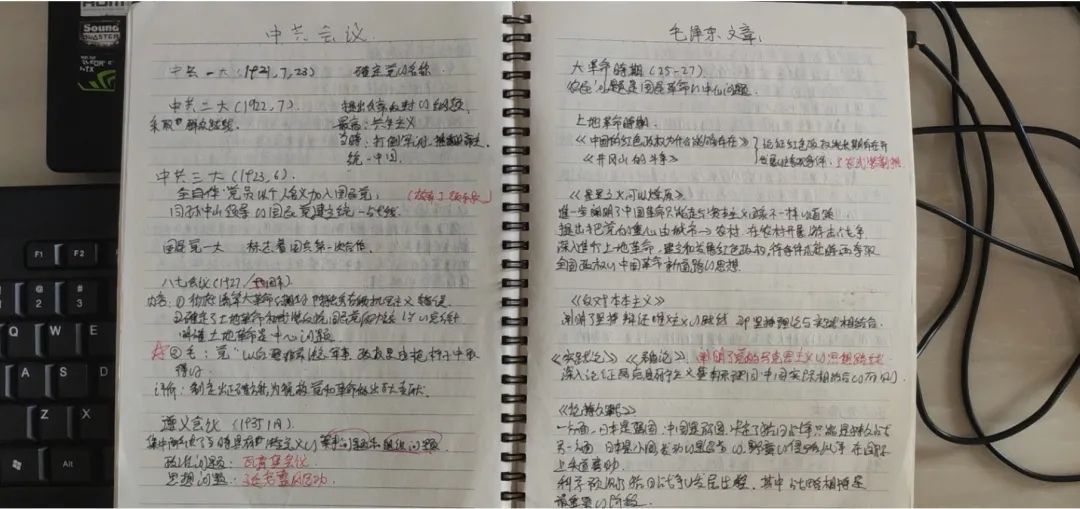 中共会议
中共一大(1921,7,23) 确定党的名称
中共二大(1922,7)
采取群众路线
最高:共产主义
当时:打倒军阀
统一中国
中共三大(1923,6)
全自体党员以个人名义加入国民党
同孙中山领导的国民党建立统一战线
国民党一大 标志着国共第一次合作
八七会议(1927
内容:①
②确定了土地革命和武装反抗国民党
明确土地革命是中心问题
③毛:党
政权是由枪杆子中取
得的
评价:制定出正确方针为挽救党和革命做出巨大贡献
遵义会议(1935 1月)
集中解决了当时具有决定意义的军事问题和组织问题
政治问题:瓦窑堡会议
思想问题:延安整风运动
毛泽东文章
大革命时期(25-27)
农民问题是国民革命的中心问题
土地革命时期
《中国的红色政权为什么能够存在》
《井冈山的斗争》
论证红色政权能长期存在并
发展的主客观条件
《星星之火可以燎原》
进一步阐明了中国革命只能走与资本主义国家不一样的道路
提出把党的重心由城市→农村,在农村开展游击战争
深入进行土地革命,建立和发展红色政权,待条件成熟时再夺取
全国政权的中国革命新道路的思想
《反对本本主义》
阐明了坚持辩证唯物主义的路线 即坚持理论与实际相结合
《实践论》《矛盾论》阐明了党的马克思主义的思想路线
深入论证马克思列宁主义基本原理同中国实际相结合的原则
《论持久战》
一方面,日本是强国,中国是弱国,决定了抗日战争只能是持久战
另一方面 日本是小国,发动的是退步的、野蛮的侵略战争 在国际
上失道寡助
科学预测了抗日战争的发展出程,其中战略相持是
最重要的阶段
F1
F2
Sound
BLASTER
Alt
Q
W
E
A
S
Z
X